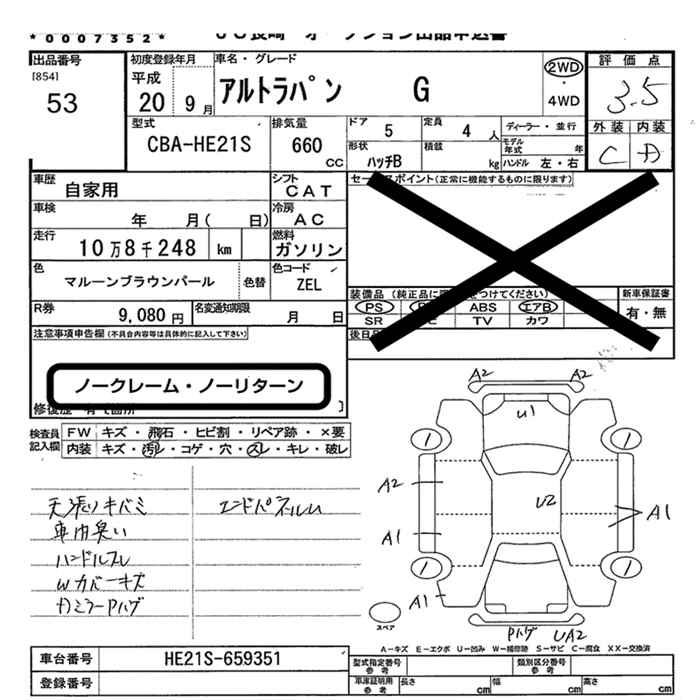 *0007352*
出品番号
[854]
53
初度登録年月
平成
20 9月
車名・グレード
アルトラパン G
2WD
・
4WD
評価点
3.5
型式
CBA-HE21S
排気量
660
CC
ドア 5
定員 4 人
ディーラー・並行
形状
ハッチB
積載
kg
モデル
年式
年
ハンドル 左・右
外装 内装
C A
車歴 自家用
シフト
CAT
車検 年 月( 日)
冷房
AC
走行 10万8千248 km
燃料
ガソリン
色
マルーンブラウンパール
色替
色コード
ZEL
R券 9,080円
名変通知期限
月 日
(正常に機能するものに限ります)
装備品
新車保証書
有・無
PS
ABS
エアB
SR
TV
カワ
注意事項申告欄(不具合内容等は具体的に記入して下さい)
ノークレーム・ノーリターン
検査員
記入欄
FW キズ・飛石・ヒビ割・リペア跡・×要
内装 キズ・汚レ・コゲ・穴・スレ・キレ・破レ
天張りキバミ
車内臭い
ハンドルスレ
Wカバーキズ
カミラーPハゲ
エンドパネルU
A2 A2
U1
1 1
A2
U2
A1 A1
1 1
A1
スペア
Pハゲ UA2
A−キズ E−エクボ U−凹み W−補修跡 S−サビ C−腐食 XX−交換済
車台番号 HE21S-659351
登録番号
型式指定番号
参考
類別区分番号
参考
車庫証明用
参考
長さ cm
幅 cm
高さ cm